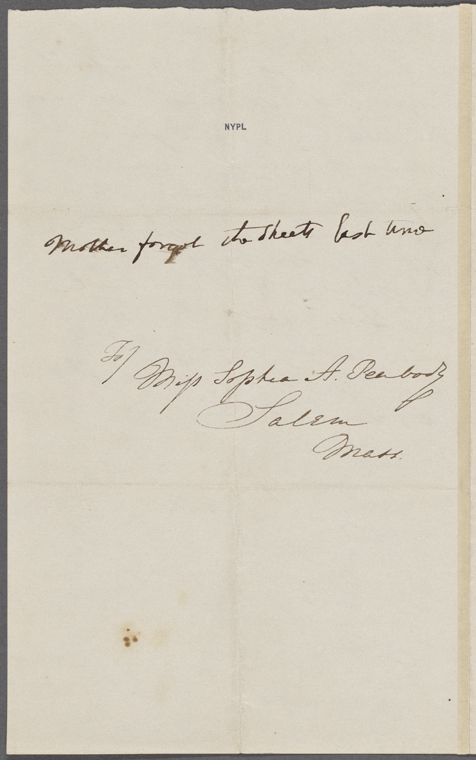 NYPL
Mother forgot the sheets last time
To/
Miss Sophia A. Peabody
Salem
Mass.